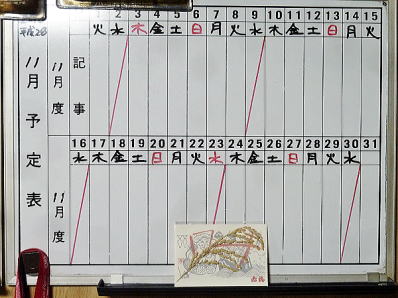 平成28
2 3 4 5 6 7 8 9 10 11 12 13 14 15
火 水 木 金 土 日 月 火 水 木 金 土 日 月 火
11月予定表
11月度
記事
16 17 18 19 20 21 22 23 24 25 26 27 28 29 30 31
水 木 金 土 日 月 火 水 木 金 土 日 月 火 水
11月度